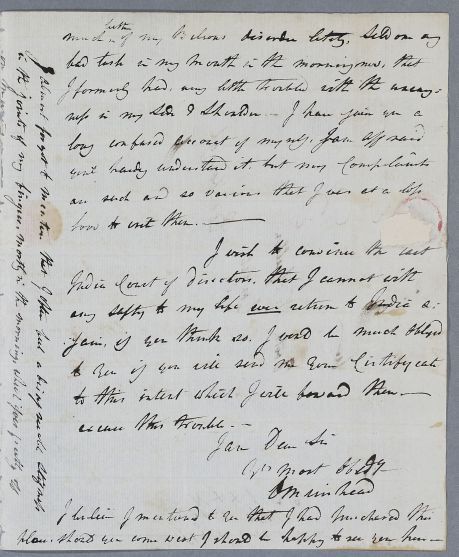 much better of my Bilious disorder lately, seldom any
bad taste in my mouth in the mornings now, that
I formerly had, very little troubled with the uneasy-
ness in my Side & Shoulder. — I have given you a
long confused account of myself, I am affraid
you'l hardly understand it, but my Complaints
are such and so various that I was at a loss
how to write them. —
I wish to convince the East
India Court of directors, that I cannot with
any safty to my life ever return to India a-
gain, if you think so. I would be much oblig'd
to you if you will send me your Certifycate
to this intent which I will forward them —
excuse this trouble —
I am Dear Sir
Yrs most Obedt
Muirhead
I believe I mentiond to you that I had purchased this
place. should you come west I should be happy to see you here —
I almost forgot to mention that I often had a disagreeable stiffness
in the joints of my fingers, mostly in the morning,